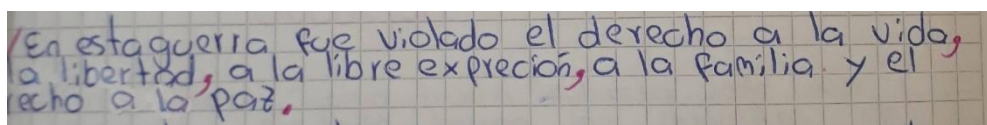 En esta guerra fue violado el derecho a la vida,
a libertad, a la libre exprecion, a la familia y el
recho a la paz.